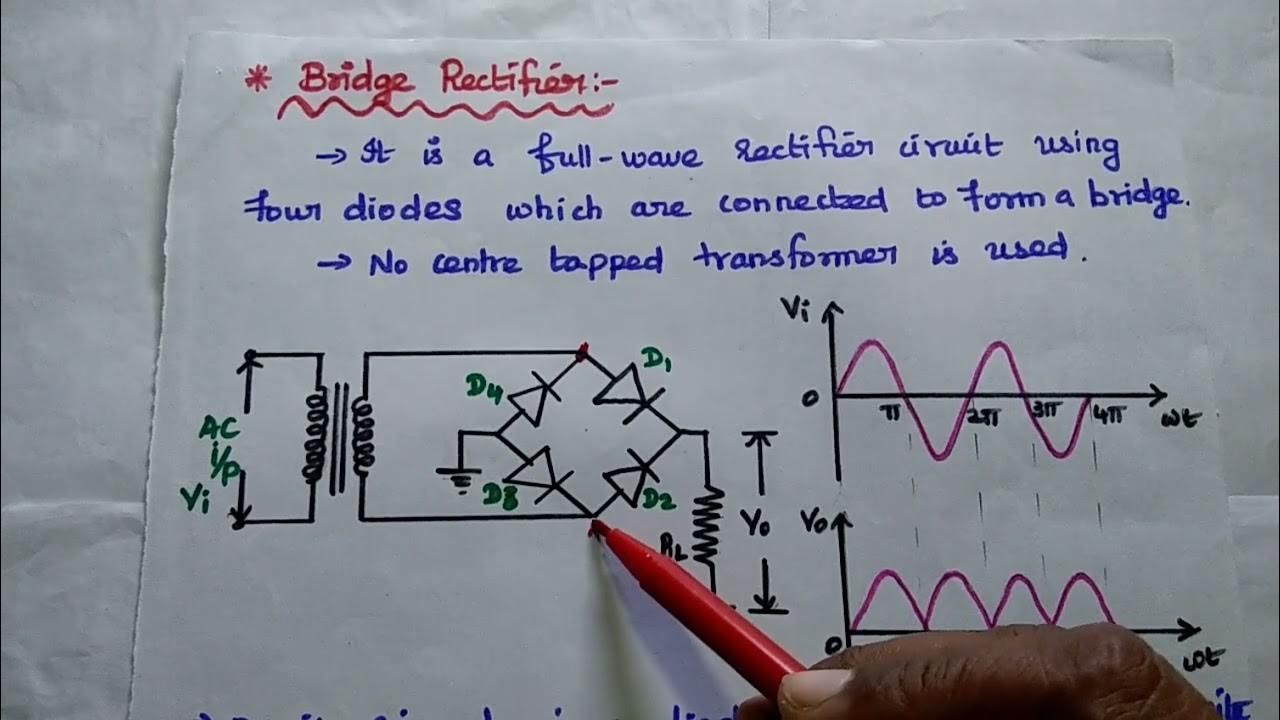 * Bridge Rectifier:-
→ It is a full-wave rectifier ciruit using
four diodes which are connected to form a bridge.
→ No centre tapped transformer is used.
Vi
D1
D4
0
π 2π 3π 4π
ωt
AC
i/p
Vi
D3
D2
RL
Vo
Vo
0
ωt